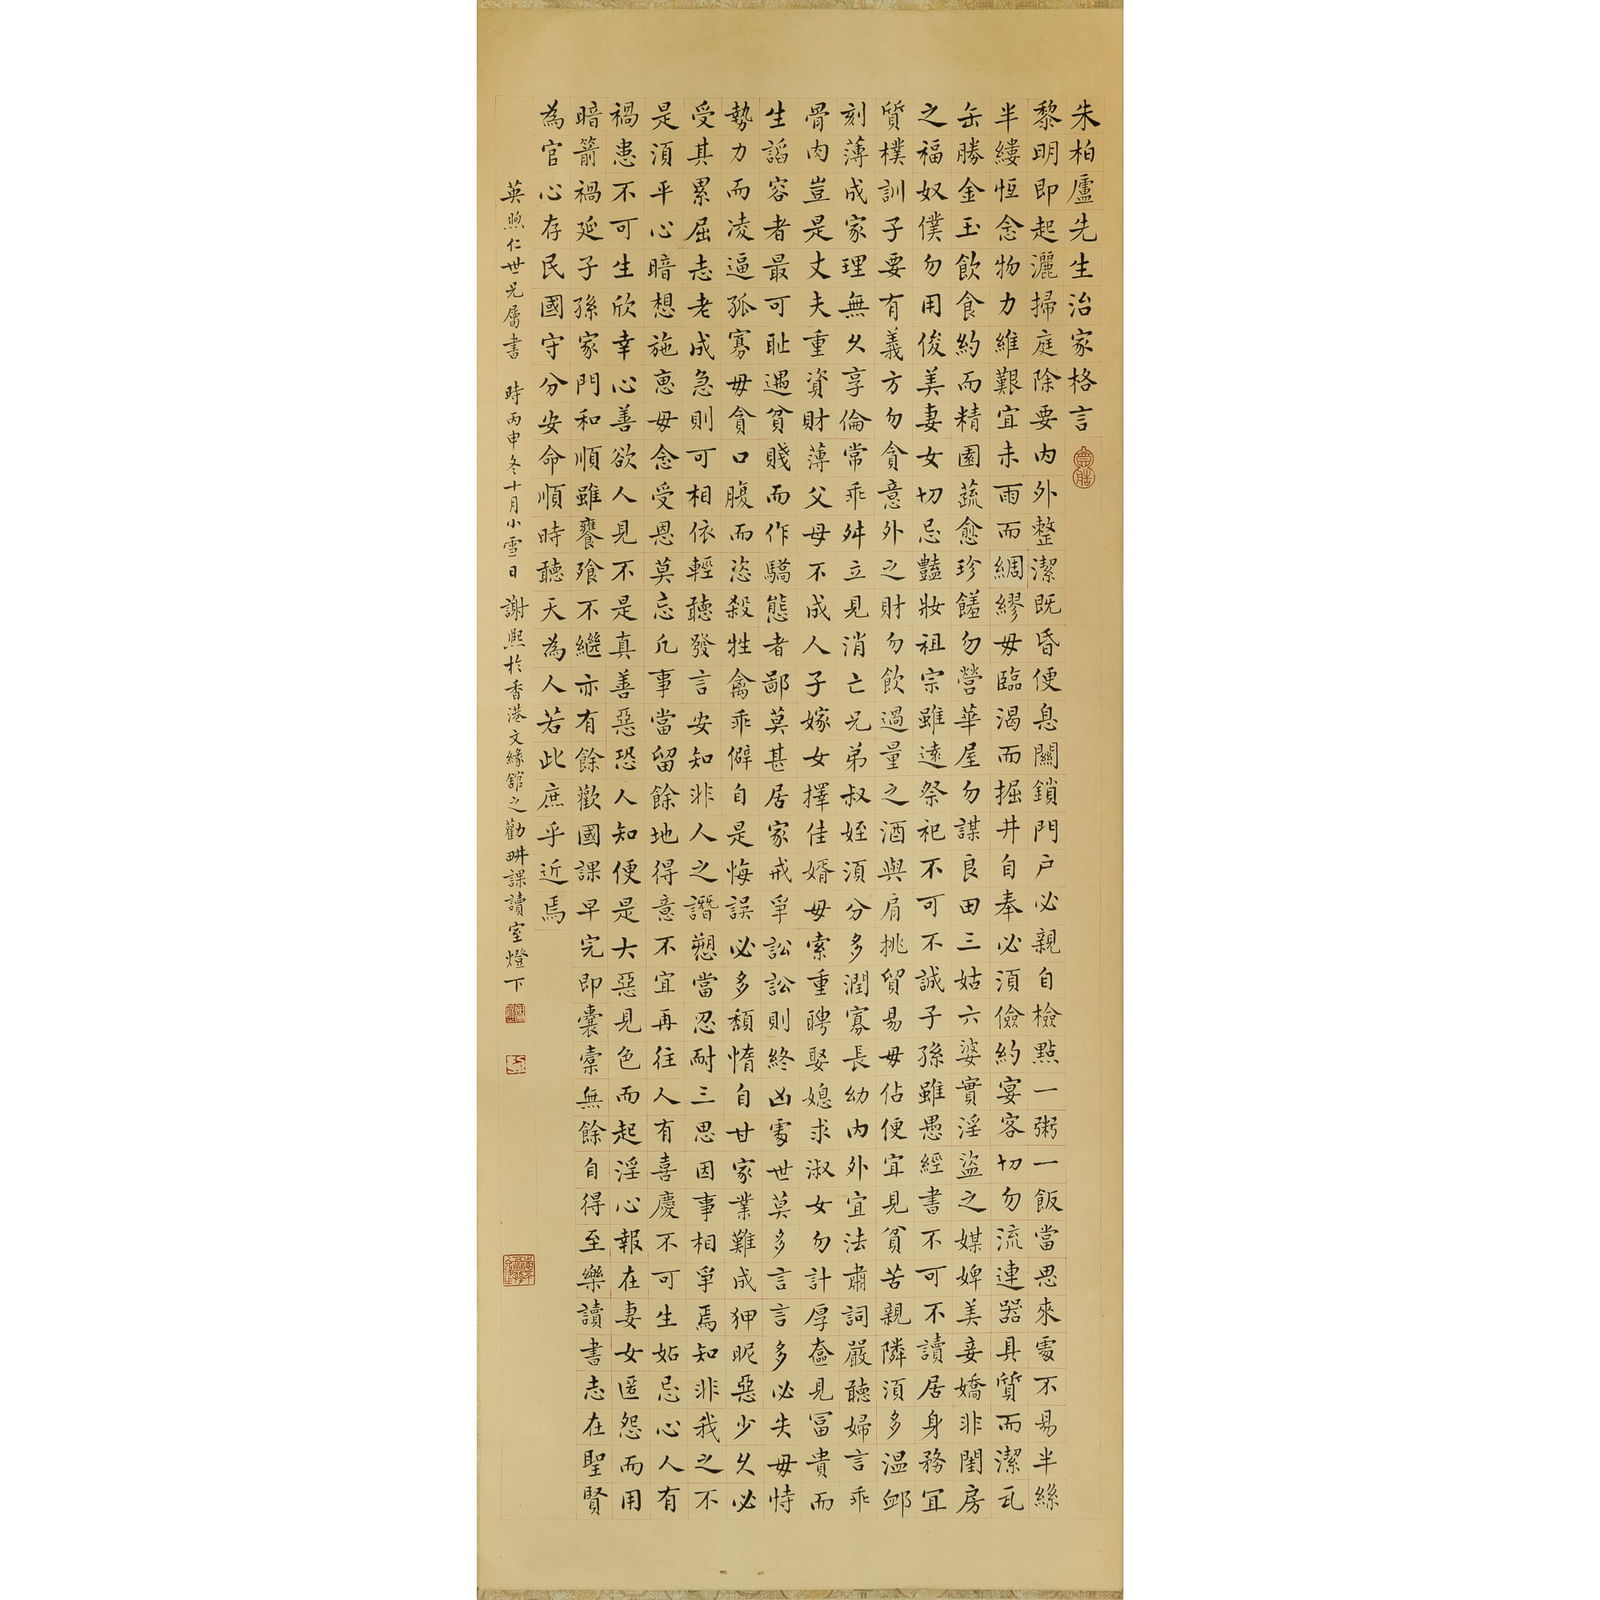 朱柏廬先生治家格言
黎明即起灑掃庭除要內外整潔既昏便息關鎖門戶必親自檢點一粥一飯當思來處不易半絲
半縷恆念物力維艱宜未雨而綢繆毋臨渴而掘井自奉必須儉約宴客切勿流連器具質而潔瓦
缶勝金玉飲食約而精園蔬愈珍饈勿營華屋勿謀良田三姑六婆實淫盜之媒婢美妾嬌非閨房
之福奴僕勿用俊美妻女切忌豔妝祖宗雖遠祭祀不可不誠子孫雖愚經書不可不讀居身務宜
質樸訓子要有義方勿貪意外之財勿飲過量之酒與肩挑貿易毋佔便宜見貧苦親隣須多温卹
刻薄成家理無久享倫常乖舛立見消亡兄弟叔姪須分多潤寡長幼內外宜法肅詞嚴聽婦言乖
骨肉豈是丈夫重資財薄父母不成人子嫁女擇佳婿毋索重聘娶媳求淑女勿計厚奩見冨貴而
生諂容者最可恥遇貧賤而作驕態者鄙莫甚居家戒爭訟訟則終凶處世莫多言言多必失毋恃
勢力而凌逼孤寡毋貪口腹而恣殺牲禽乖僻自是悔誤必多頹惰自甘家業難成狎昵惡少久必
受其累屈志老成急則可相依輕聽發言安知非人之譖愬當忍耐三思因事相爭焉知非我之不
是須平心暗想施惠毋念受恩莫忘凡事當留餘地得意不宜再往人有喜慶不可生妬忌心人有
禍患不可生欣幸心善欲人見不是真善惡恐人知便是大惡見色而起淫心報在妻女匿怨而用
暗箭禍延子孫家門和順雖饔飧不繼亦有餘歡國課早完即囊橐無餘自得至樂讀書志在聖賢
為官心存民國守分安命順時聽天為人若此庶乎近焉
英煦仁世兄屬書 時丙申冬十月小雪日 謝熙於香港文緣館之勸畊課讀室燈下